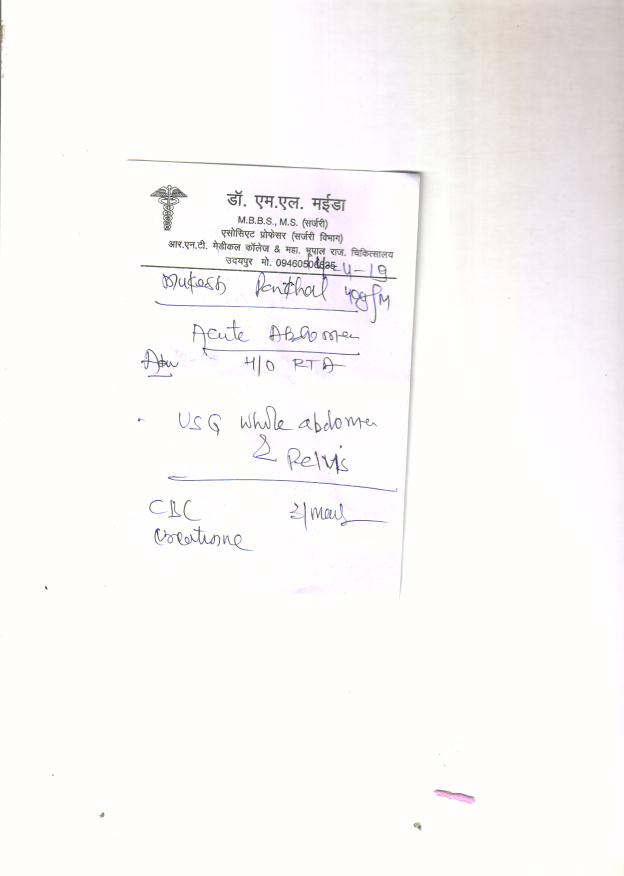 डॉ. एम.एल. मईडा
M.B.B.S., M.S. (सर्जरी)
एसोसिएट प्रोफेसर (सर्जरी विभाग)
आर.एन.टी. मेडीकल कॉलेज & महा. भूपाल राज. चिकित्सालय
उदयपुर मो. 09460506635
4-19
Mukesh Panchal M
Acute Abdomen
H/O RTA
USG whole abdomen
& Pelvis
CBC
Creatinine